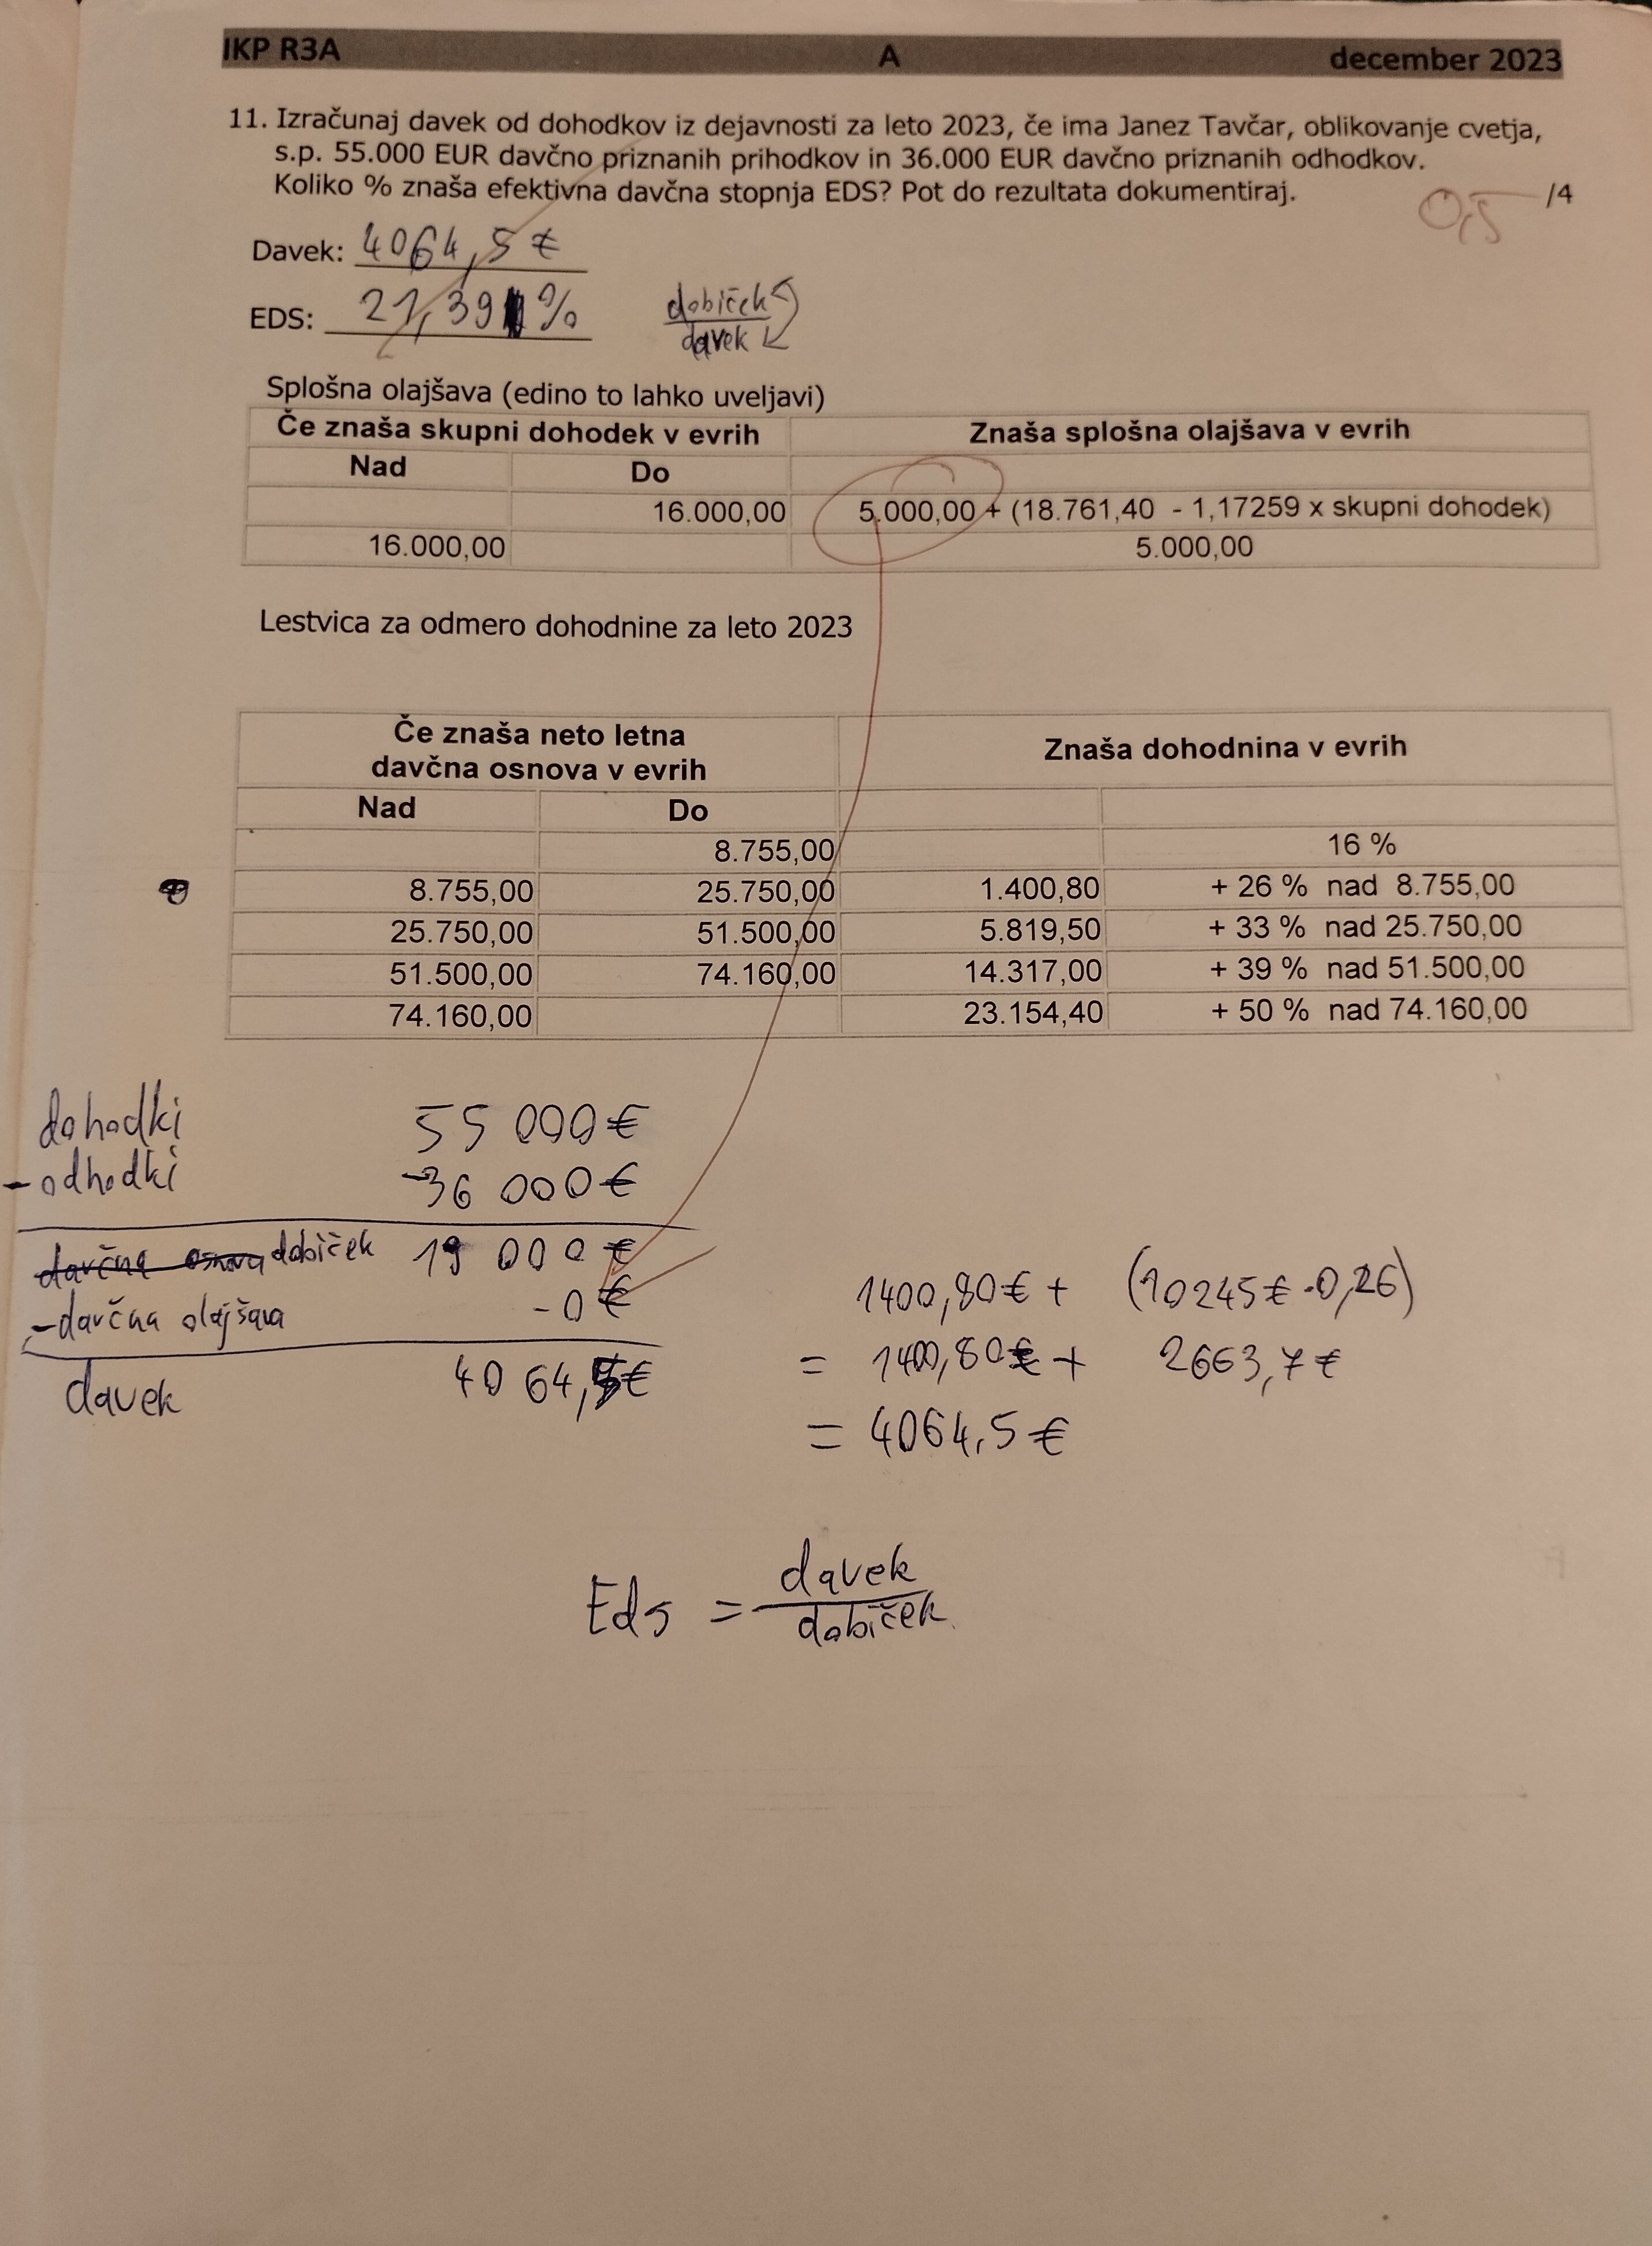 IKP R3A A december 2023
11. Izračunaj davek od dohodkov iz dejavnosti za leto 2023, če ima Janez Tavčar, oblikovanje cvetja,
s.p. 55.000 EUR davčno priznanih prihodkov in 36.000 EUR davčno priznanih odhodkov.
Koliko % znaša efektivna davčna stopnja EDS? Pot do rezultata dokumentiraj.
0,5 /4
Davek: 4064,5 €
EDS: 21,39 %
dobiček
davek
Splošna olajšava (edino to lahko uveljavi)
Če znaša skupni dohodek v evrih Znaša splošna olajšava v evrih
Nad Do
16.000,00 5.000,00 + (18.761,40 - 1,17259 x skupni dohodek)
16.000,00 5.000,00
Lestvica za odmero dohodnine za leto 2023
Če znaša neto letna
davčna osnova v evrih
Znaša dohodnina v evrih
Nad Do
8.755,00 16 %
8.755,00 25.750,00 1.400,80 + 26 % nad 8.755,00
25.750,00 51.500,00 5.819,50 + 33 % nad 25.750,00
51.500,00 74.160,00 14.317,00 + 39 % nad 51.500,00
74.160,00 23.154,40 + 50 % nad 74.160,00
dohodki 55 000 €
- odhodki -36 000 €
davčna osnova dobiček 19 000 €
- davčna olajšava - 0 €
davek 4064,5 €
1400,80 € + (10245 € · 0,26)
= 1400,80 € + 2663,7 €
= 4064,5 €
Eds = davek
dobiček